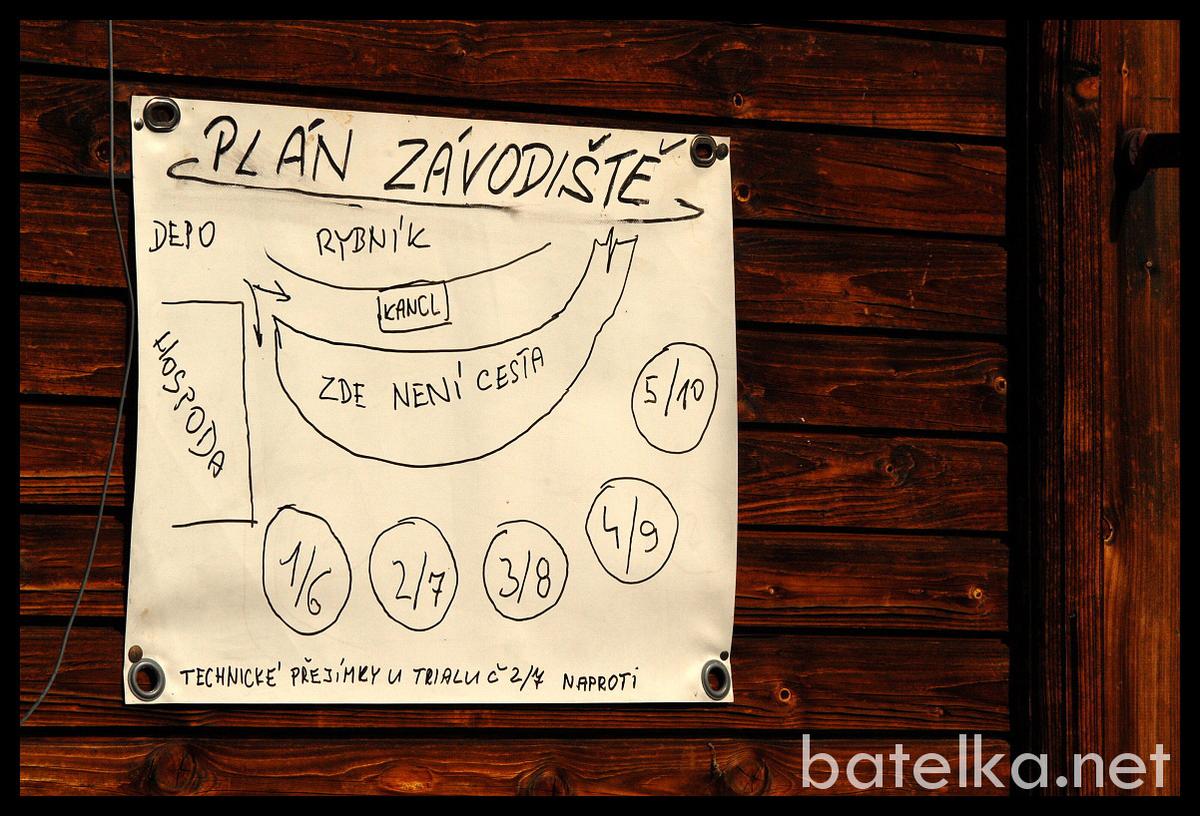 PLÁN ZÁVODIŠTĚ
DEPO
RYBNÍK
KANCL
ZDE NENÍ CESTA
HOSPODA
5/10
4/9
1/6
2/7
3/8
TECHNICKÉ PŘEJÍMKY U TRIALU Č 2/7 NAPROTI
batelka.net